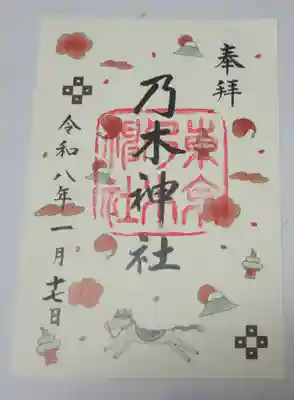 奉拝
乃木神社
令和八年一月十七日
東京乃木神社